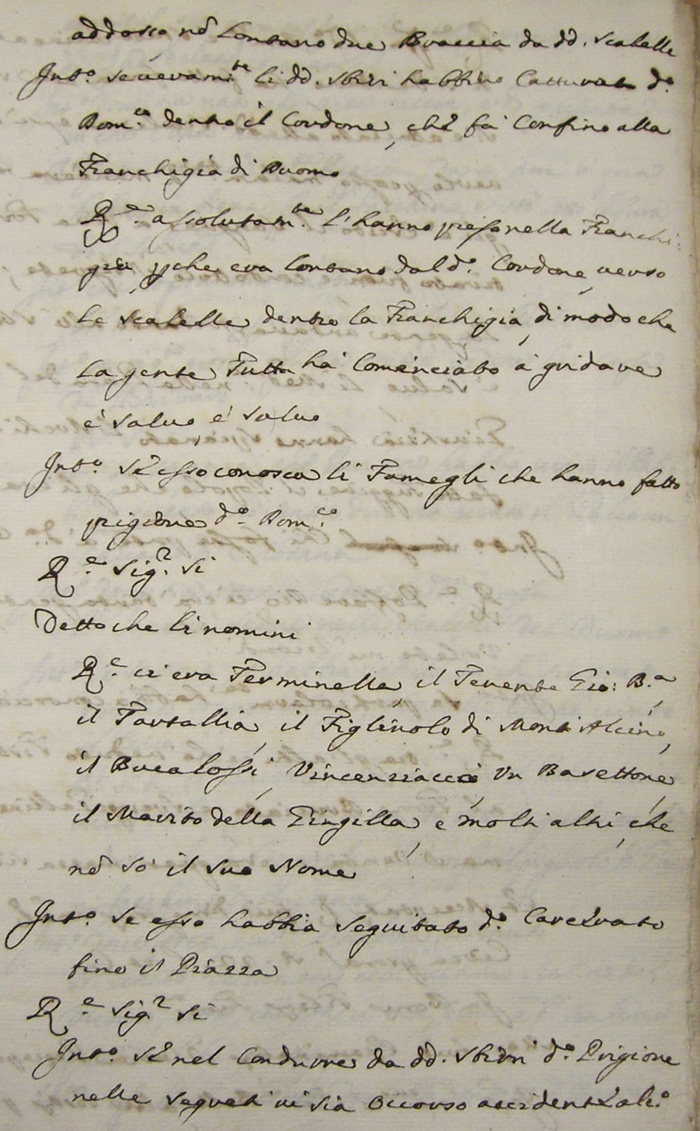 addosso nõ Lontano due Braccia da dd. scalelle
Intº. se veramte. li dd. sbirri habbino Catturato dº.
Domco. dentro il Cordone, chè fà Confino alla
Franchigia di Duomo
Re. assolutamte. l'hanno preso nella Franchi
gia pche era lontano dal dº. Cordone, verso
le scalelle dentro la Franchigia, di modo che
la gente Tutta ha' Cominciato à gridare
è salvo è salvo
Intº. Sè esso conosca li Famegli che hanno fatto
prigione dº. Domco.
Re. Sigr. si
Detto che li nomini
Re. ci era Ferminella, il Tenente Gio: Ba.
il Tartallia, il Figliuolo di Mont Alcino,
il Bucalossi, Vincenziaccio Un Basettone,
il Marito della Gingilla, e molti altri, che
nõ sò il suo Nome
Intº. se esso habbia seguitato dº. Carcerato
fino il Piazza
Re. Sigr. si
Intº. Sè nel Condurre da dd. sbirri dº. Prigione
nelle segreti vi sia occorso accidente alcº.